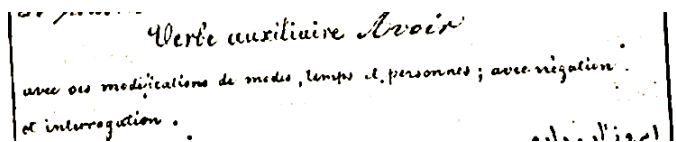 Verbe auxiliaire Avoir
avec ses modifications de modes, temps et personnes ; avec négation
et interrogation .